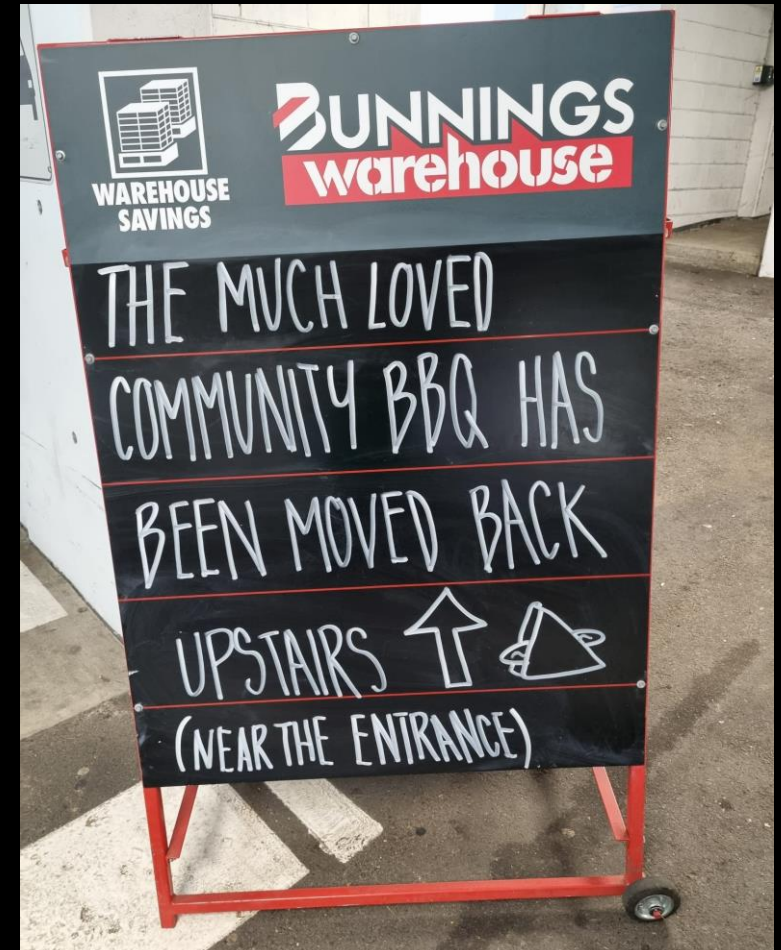 WAREHOUSE
SAVINGS
BUNNINGS
warehouse
THE MUCH LOVED
COMMUNITY BBQ HAS
BEEN MOVED BACK
UPSTAIRS
(NEAR THE ENTRANCE)